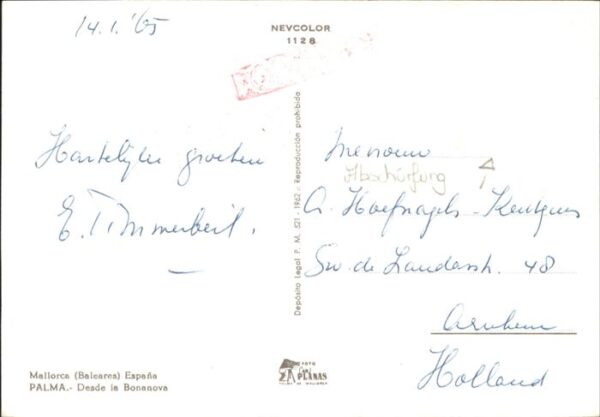 14.1.'65
NEVCOLOR
1128
Hartelijke groeten
E. Timmerbeil.
Depósito Legal P. M. 521 - 1962 - Reproducción prohibida
Mevrouw
Abschürfung
A. Hoefnagels-
Sw. de Landasstr. 48
Arnhem
Holland
Mallorca (Baleares) España
PALMA.- Desde la Bonanova
FOTO
PLANAS
PALMA DE MALLORCA